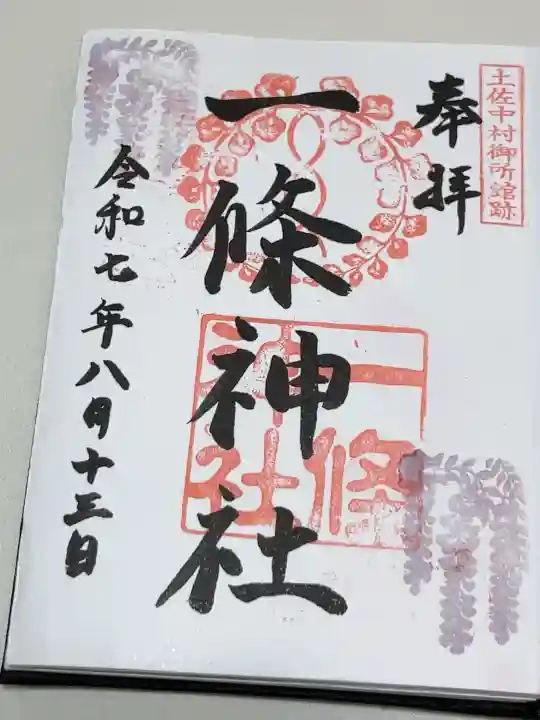 土佐中村御所館跡
奉拝
一條神社
一條神社
令和七年八月十三日